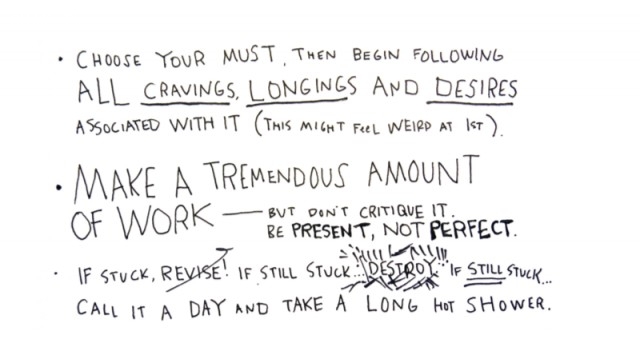 • CHOOSE YOUR MUST, THEN BEGIN FOLLOWING
ALL CRAVINGS, LONGINGS AND DESIRES
ASSOCIATED WITH IT (THIS MIGHT FEEL WEIRD AT 1ST).
• MAKE A TREMENDOUS AMOUNT
OF WORK — BUT DON'T CRITIQUE IT.
BE PRESENT, NOT PERFECT.
• IF STUCK, REVISE! IF STILL STUCK... DESTROY!! IF STILL STUCK...
CALL IT A DAY AND TAKE A LONG HOT SHOWER.